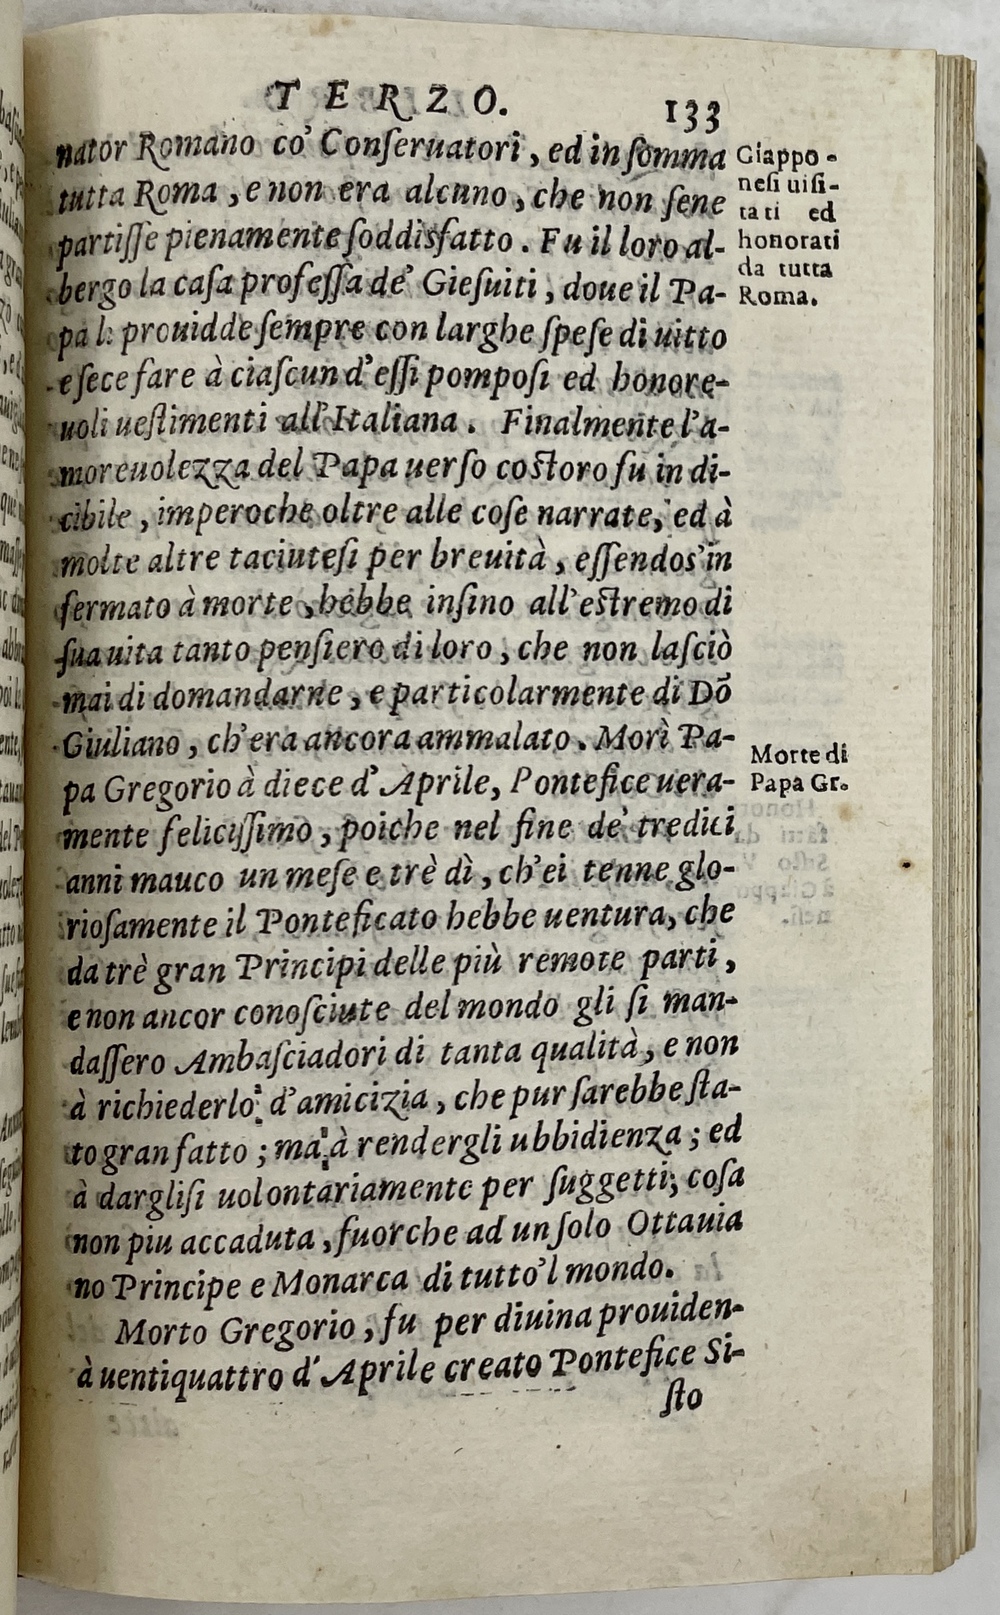 TERZO. 133
nator Romano co' Conſeruatori, ed in ſomma
tutta Roma, e non era alcuno, che non ſene
partiſſe pienamente ſoddisfatto. Fu il loro al-
bergo la caſa profeſſa de' Gieſuiti, doue il Pa-
pa li prouidde ſempre con larghe ſpeſe di uitto
e fece fare à ciaſcun d'eſſi pompoſi ed honore-
uoli ueſtimenti all'Italiana. Finalmente l'a-
moreuolezza del Papa uerſo coſtoro fu in di-
cibile, imperoche oltre alle coſe narrate, ed à
molte altre taciuteſi per breuità, eſſendoſ'in
fermato à morte, hebbe inſino all'eſtremo di
ſua uita tanto penſiero di loro, che non laſciò
mai di domandarne, e particolarmente di Dõ
Giuliano, ch'era ancora ammalato. Morì Pa-
pa Gregorio à diece d'Aprile, Pontefice uera-
mente feliciſſimo, poiche nel fine de' tredici
anni mauco un meſe e trè dì, ch'ei tenne glo-
rioſamente il Ponteficato hebbe uentura, che
da trè gran Principi delle più remote parti,
e non ancor conoſciute del mondo gli ſi man-
daſſero Ambaſciadori di tanta qualità, e non
à richiederlo d'amicizia, che pur ſarebbe ſta-
to gran fatto; ma à rendergli ubbidienza; ed
à dargliſi uolontariamente per ſuggetti; coſa
non piu accaduta, fuorche ad un ſolo Ottauia
no Principe e Monarca di tutto'l mondo.
Morto Gregorio, fu per diuina prouiden-
à uentiquattro d'Aprile creato Pontefice Si-
ſto
Giappo-
neſi uiſi-
tati ed
honorati
da tutta
Roma.
Morte di
Papa Gr.